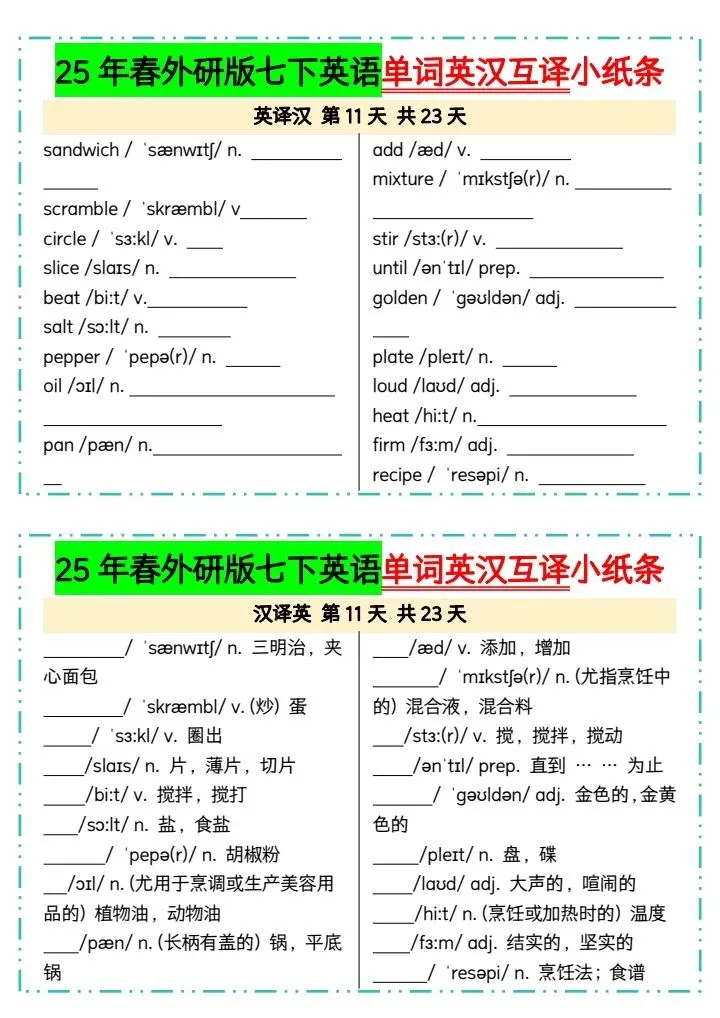 25 年春外研版七下英语单词英汉互译小纸条
英译汉 第 11 天 共 23 天
sandwich / ˈsænwɪtʃ/ n. __________
______
scramble / ˈskræmbl/ v_______
circle / ˈsɜːkl/ v. ____
slice /slaɪs/ n. ______________
beat /biːt/ v.___________
salt /sɔːlt/ n. ________
pepper / ˈpepə(r)/ n. ______
oil /ɔɪl/ n. _______________________
____________________
pan /pæn/ n._____________________
__
add /æd/ v. __________
mixture / ˈmɪkstʃə(r)/ n. ___________
__________________
stir /stɜː(r)/ v. ______________
until /ənˈtɪl/ prep. _______________
golden / ˈɡəʊldən/ adj. ___________
____
plate /pleɪt/ n. ______
loud /laʊd/ adj. ______________
heat /hiːt/ n._____________________
firm /fɜːm/ adj. ______________
recipe / ˈresəpi/ n. _______________
25 年春外研版七下英语单词英汉互译小纸条
汉译英 第 11 天 共 23 天
_________/ ˈsænwɪtʃ/ n. 三明治，夹
心面包
_________/ ˈskræmbl/ v. (炒) 蛋
_____/ ˈsɜːkl/ v. 圈出
____/slaɪs/ n. 片，薄片，切片
____/biːt/ v. 搅拌，搅打
____/sɔːlt/ n. 盐，食盐
______/ ˈpepə(r)/ n. 胡椒粉
__/ɔɪl/ n. (尤用于烹调或生产美容用
品的) 植物油，动物油
____/pæn/ n. (长柄有盖的) 锅，平底
锅
____/æd/ v. 添加，增加
_______/ ˈmɪkstʃə(r)/ n. (尤指烹饪中
的) 混合液，混合料
___/stɜː(r)/ v. 搅，搅拌，搅动
____/ənˈtɪl/ prep. 直到 … … 为止
______/ ˈɡəʊldən/ adj. 金色的,金黄
色的
_____/pleɪt/ n. 盘，碟
____/laʊd/ adj. 大声的，喧闹的
____/hiːt/ n. (烹饪或加热时的) 温度
____/fɜːm/ adj. 结实的，坚实的
______/ ˈresəpi/ n. 烹饪法；食谱